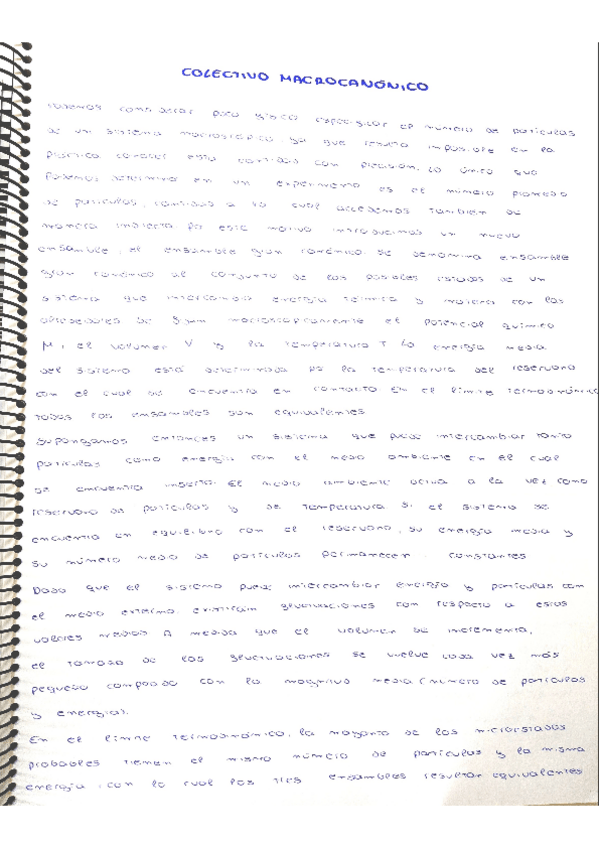 COLECTIVO MACROCANÓNICO
Podemos considerar poco físico especificar el número de partículas
de un sistema macroscópico, ya que resulta imposible en la
práctica conocer esta cantidad con precisión. Lo único que
Podemos determinar en un experimento es el número promedio
de partículas, cantidad a la cual accedemos también de
manera indirecta. Por este motivo introducimos un nuevo
ensamble, el ensamble gran canónico. Se denomina ensamble
gran canónico al conjunto de los posibles estados de un
sistema que intercambia energía térmica y materia con los
alrededores. Se macroscópicamente el potencial químico
M, el volumen V y la temperatura T. La energía media
del sistema está determinada por la temperatura del reservorio
con el cual se encuentra en contacto. En el límite termodinámico
todos los ensambles son equivalentes
Supongamos entonces un sistema que puede intercambiar tanto
partículas como energía con el medio ambiente en el cual
se encuentra inserto. El medio ambiente actúa a la vez como
reservorio de partículas y de temperatura. Si el sistema se
encuentra en equilibrio con el reservorio, su energía media y
su número medio de partículas permanecen constantes
Dado que el sistema puede intercambiar energía y partículas con
el medio externo, existirán fluctuaciones con respecto a estos
valores medios. A medida que el volumen se incrementa,
el tamaño de las fluctuaciones se vuelve cada vez más
pequeño comparado con la magnitud media (número de partículas
y energías).
En el límite termodinámico, la mayoría de los microestados
probables tienen el mismo número de partículas y la misma
energía, con lo cual los tres ensambles resultan equivalentes